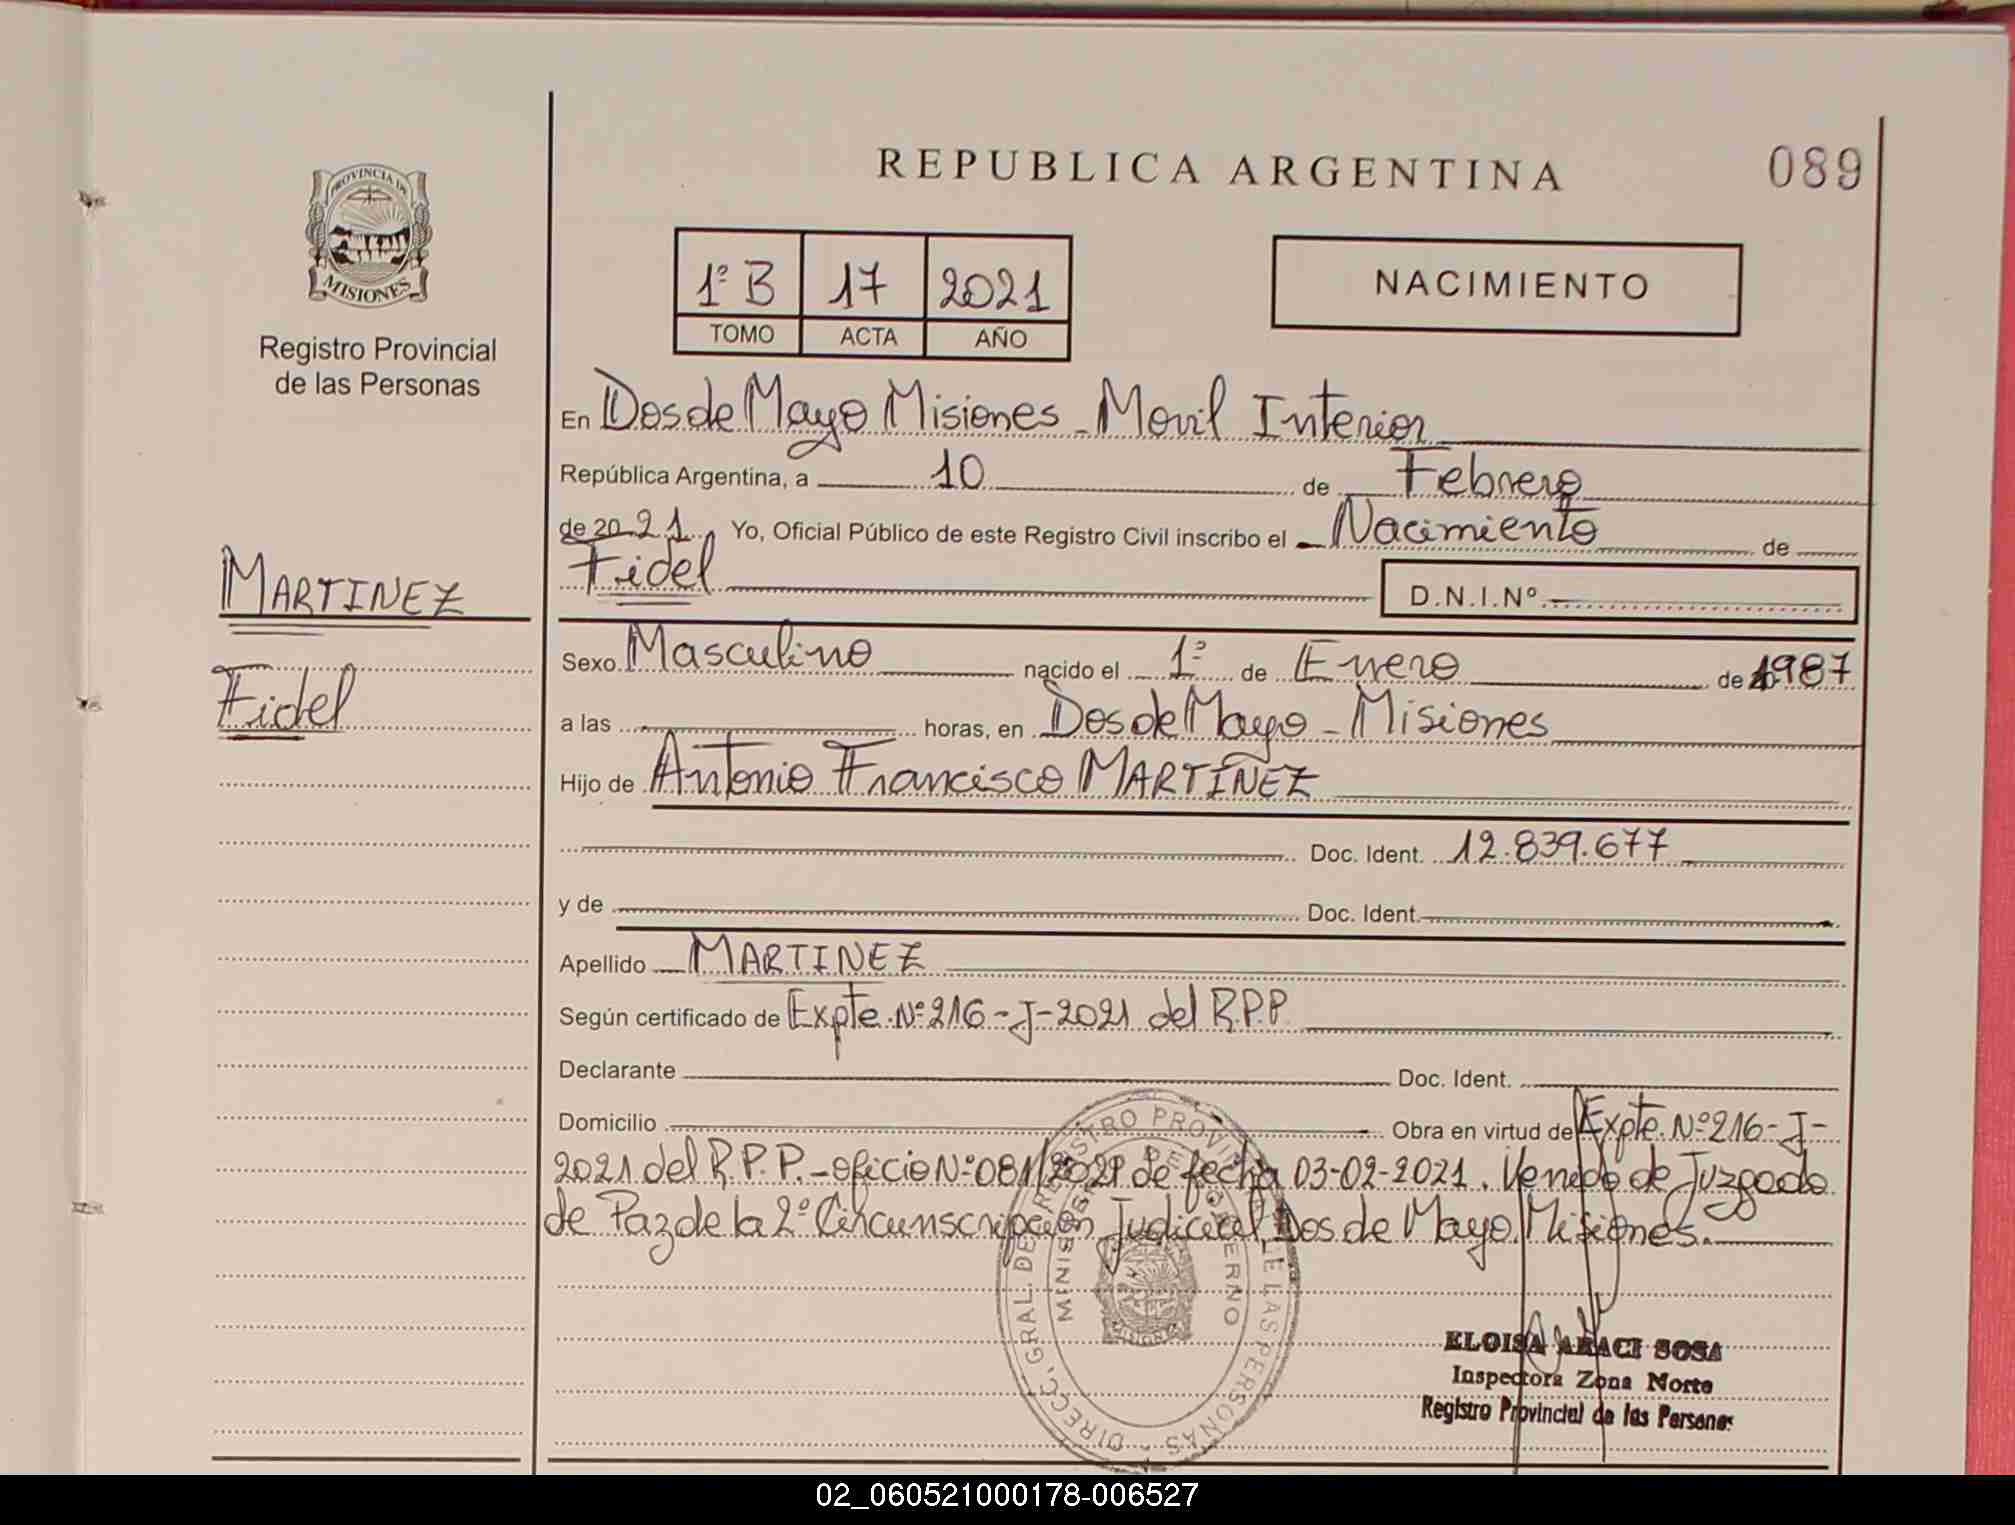 REPUBLICA ARGENTINA
089
PROVINCIA DE
MISIONES
Registro Provincial
de las Personas
1º B 17 2021
TOMO ACTA AÑO
NACIMIENTO
En Dos de Mayo Misiones - Movil Interior
República Argentina, a 10 de Febrero
de 2021 Yo, Oficial Público de este Registro Civil inscribo el Nacimiento de
Fidel
D.N.I.Nº
MARTINEZ
Fidel
Sexo Masculino nacido el 1º de Enero de 1987
a las horas, en Dos de Mayo - Misiones
Hijo de Antonio Francisco MARTIÑEZ
Doc. Ident. 12.839.677
y de Doc. Ident.
Apellido MARTINEZ
Según certificado de Expte. Nº 216-J-2021 del R.P.P.
Declarante Doc. Ident.
Domicilio Obra en virtud de Expte. Nº 216-J-
2021 del R.P.P.- oficio Nº 081/2021 de fecha 03-02-2021. Venido de Juzgado
de Paz de la 2º Circunscripción Judicial, Dos de Mayo, Misiones.
DIRECC. GRAL. DEL REGISTRO PROVINCIAL DE LAS PERSONAS
MINISTERIO DE GOBIERNO
MISIONES
ELOISA ARACI SOSA
Inspectora Zona Norte
Registro Provincial de las Personas
02_060521000178-006527